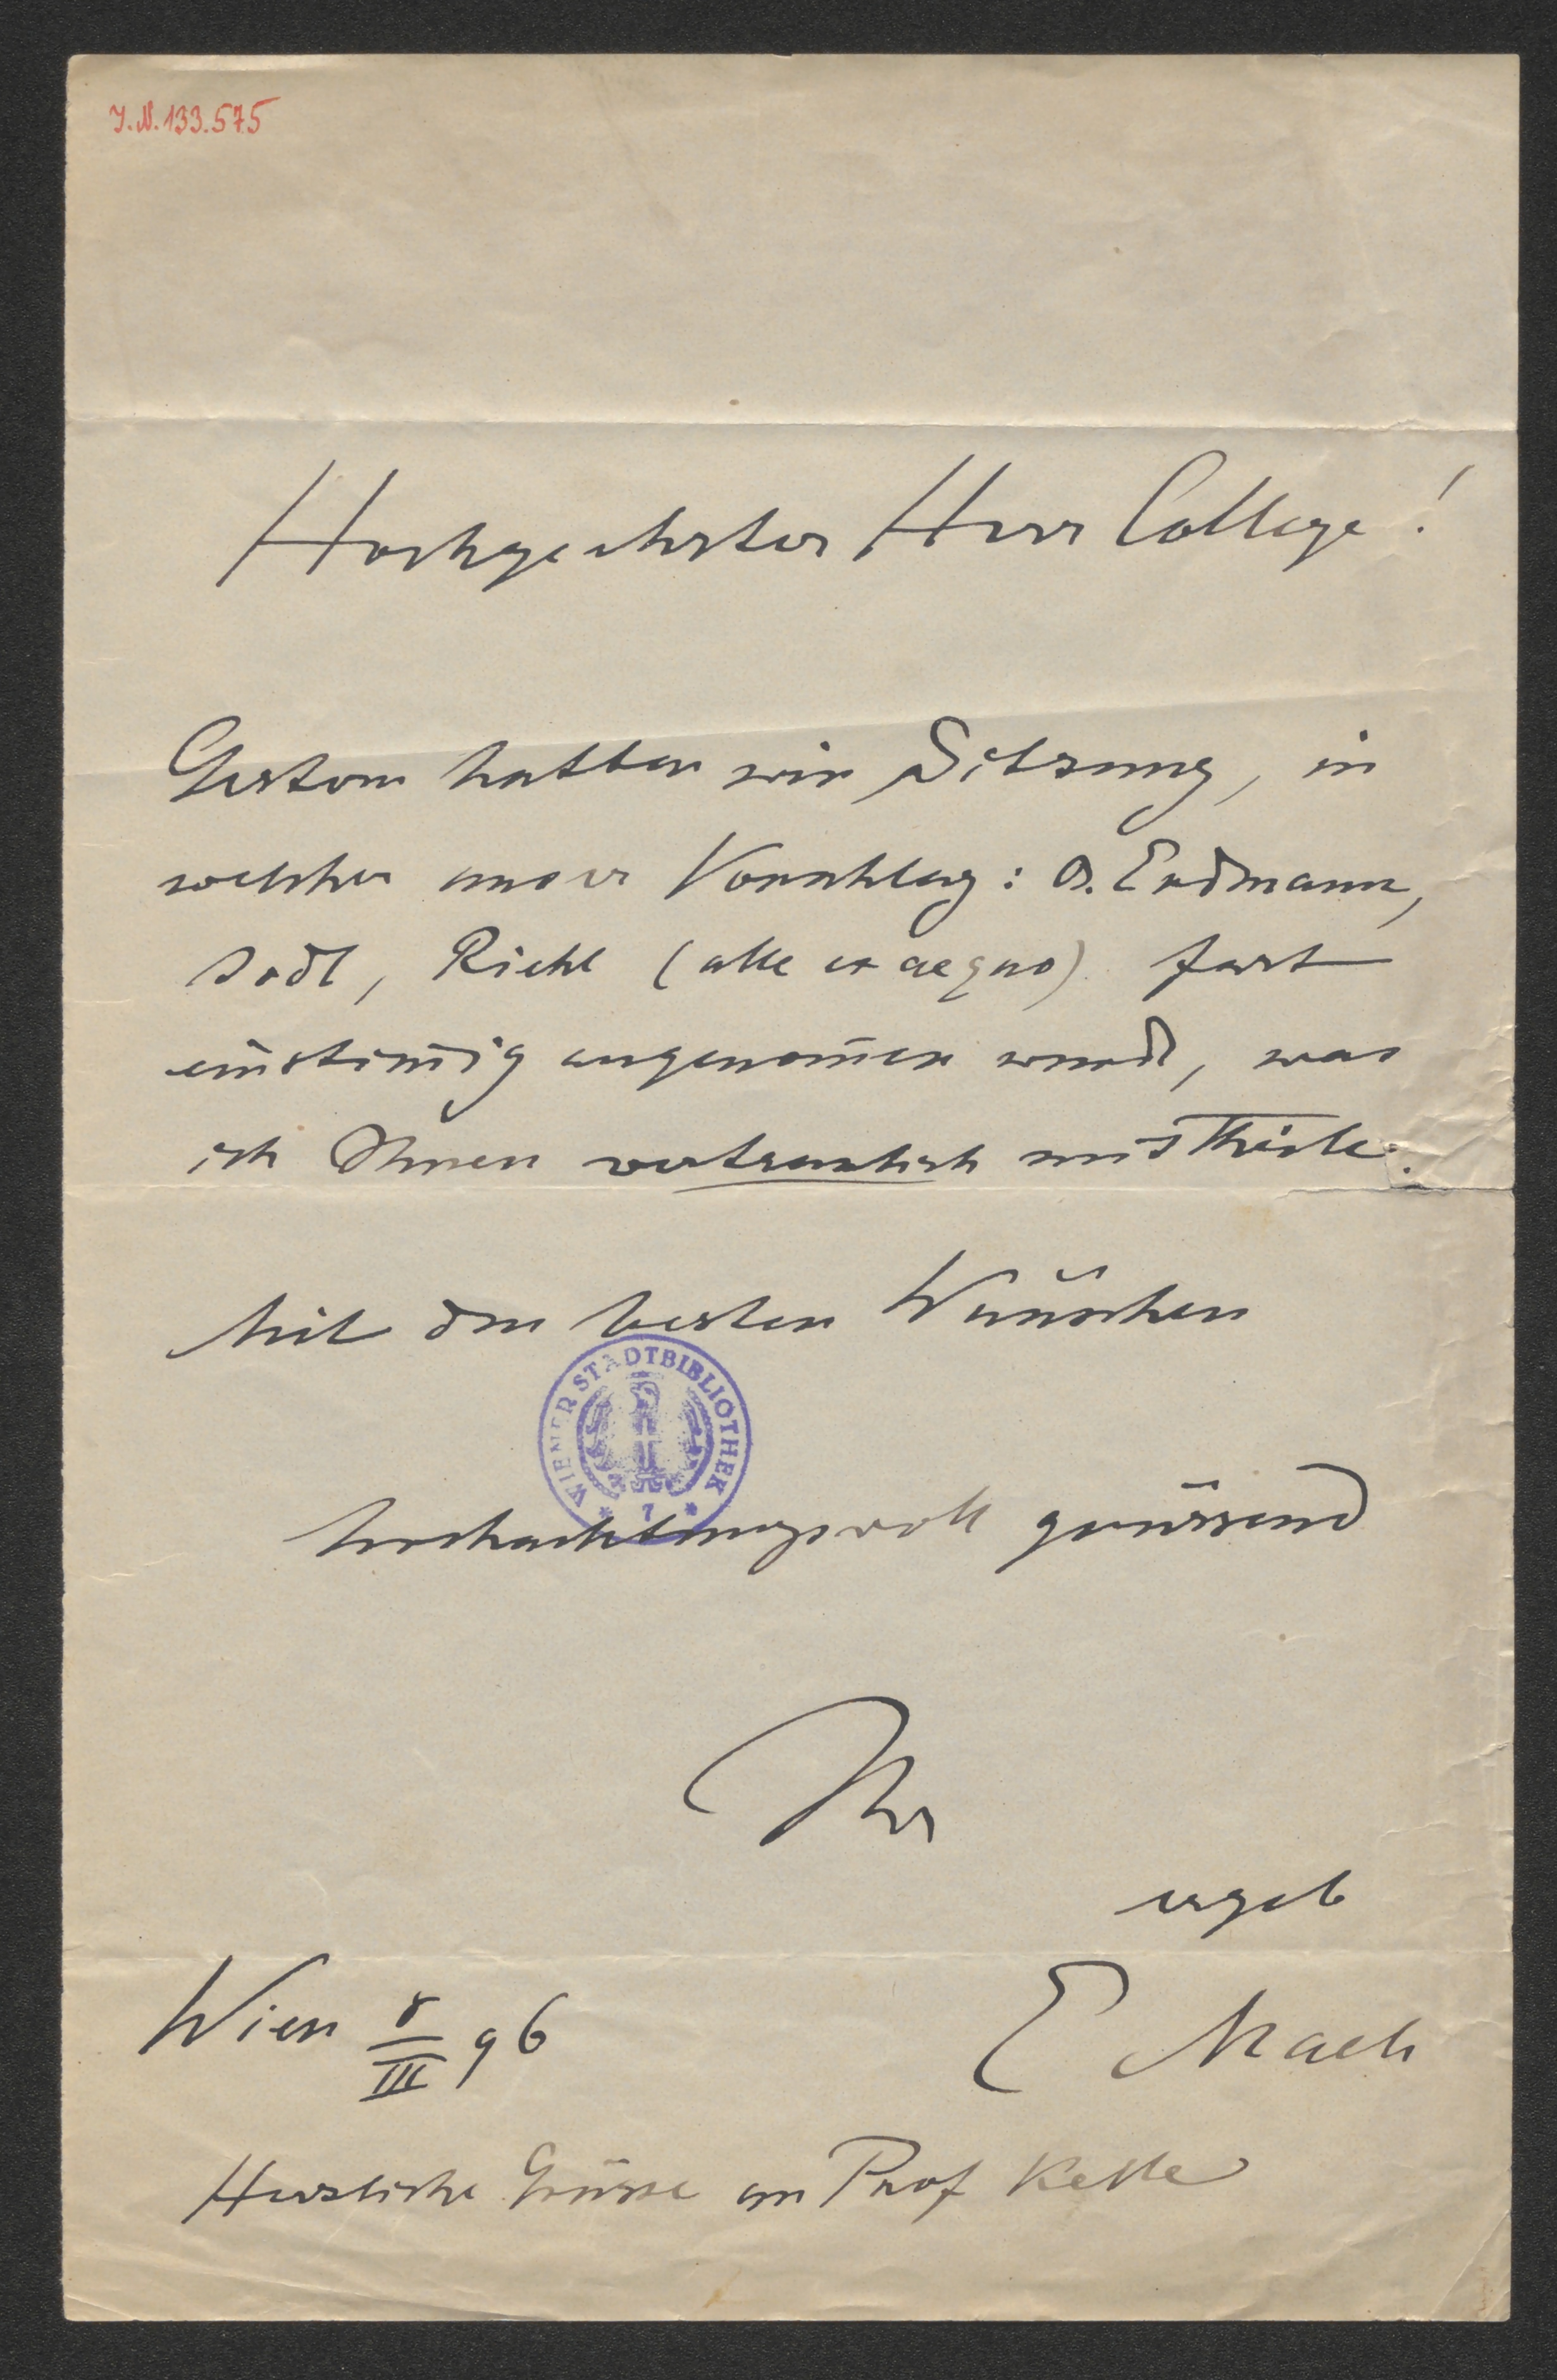 I.N. 133.575
Hochgeehrter Herr College!
Gestern hatten wir Sitzung, in
welcher unser Vorschlag: B. Erdmann,
Jodl, Riehl (alle ex aequo) fast
einstim̄ig angenom̄en wurde, was
ich Ihnen vertraulich mittheile.
Mit den besten Wünschen
WIENER STADTBIBLIOTHEK
* 7 *
hochachtungsvoll grüssend
Ihr
ergeb
Wien 8/III 96
E Mach
Herzliche Grüsse an Prof Kelle